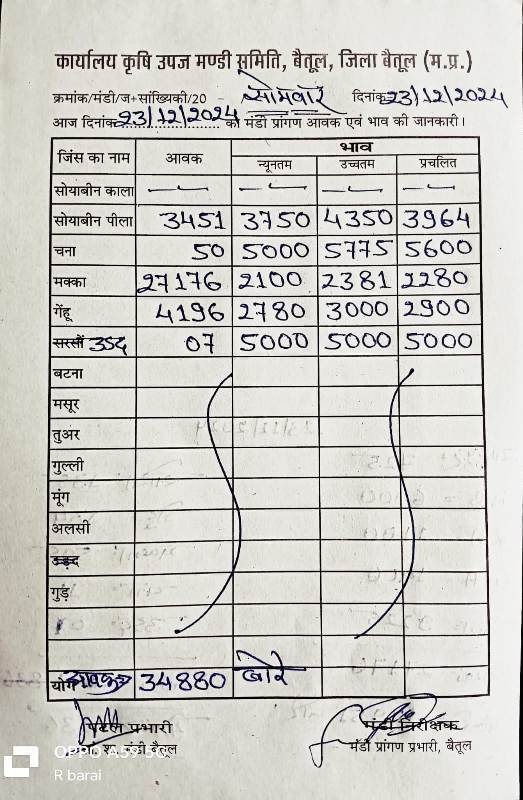 कार्यालय कृषि उपज मण्डी समिति, बैतूल, जिला बैतूल (म.प्र.)
क्रमांक/मंडी/ज+सांख्यिकी/20 - सोमवार दिनांक 23/12/2024
आज दिनांक 23/12/2024 को मंडी प्रांगण आवक एवं भाव की जानकारी।
जिंस का नाम आवक भाव
न्यूनतम उच्चतम प्रचलित
सोयाबीन काला — — — —
सोयाबीन पीला 3451 3750 4350 3964
चना 50 5000 5775 5600
मक्का 27176 2100 2381 2280
गेंहू 4196 2780 3000 2900
सरसों उड़द 07 5000 5000 5000
बटना
मसूर
तुअर
गुल्ली
मूंग
अलसी
उड़द
गुड़
योग आवक 34880 बोरे
पटल प्रभारी मंडी निरीक्षक
मंडी बैतूल मंडी प्रांगण प्रभारी, बैतूल
OPPO A59 5G
R barai